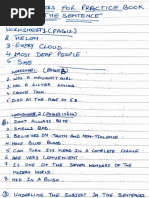 FOR PRACTICE BOOK
THE SENTENCE"
WORKSHEET 1 (PAGE 1)
2. HELEN
3. EVERY CLOUD
4. MOST DEAF PEOPLE
5. SHE
WORKSHEET 1 (PAGE 2)
1. WAS A NAUGHTY GIRL
2. HAD A SILVER LINING
3. CANNOT TALK
5. DIED AT THE AGE OF 53
WORKSHEET 2 (PAGE 2)
1. DON'T ALWAYS BITE.
2. SMELLS BAD.
3. BELIEVED ON TRUTH AND NON-VIOLENCE.
4. HAVE BLUE BLOOD.
5. CAN TURN ITS HEAD IN A COMPLETE CIRCLE.
6. ARE VERY CONVENIENT
7. IS ONE OF THE SEVEN WONDERS OF THE
MODERN WORLD.
8. WAS IN A RUSH.
UNDERLINE THE SUBJECT IN THE SENTENCES